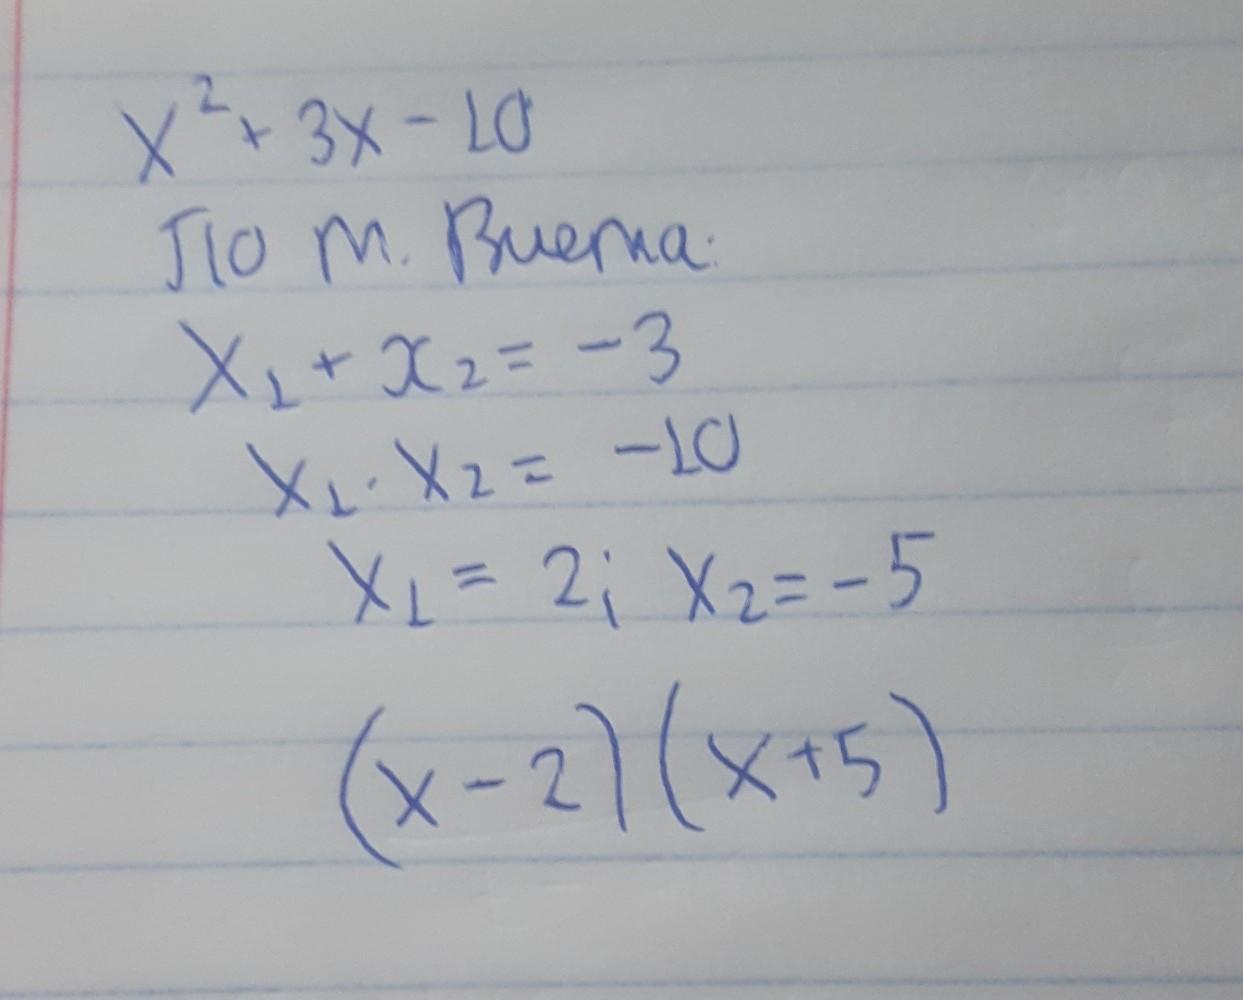 x² + 3x - 10
По т. Виета:
x₁ + x₂ = -3
x₁ · x₂ = -10
x₁ = 2; x₂ = -5
(x - 2)(x + 5)